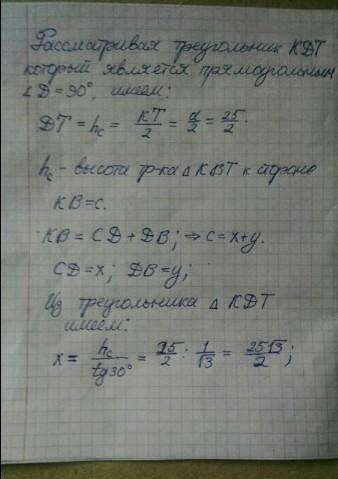 Рассматривая треугольник KDT
который является прямоугольным
∠D=90°, имеем:
DT = h_c = KT/2 = a/2 = 25/2.
h_c - высота тр-ка △ KBT к стороне
KB=c.
KB = CD + DB; ⇒ c=x+y.
CD=x; DB=y;
Из треугольника △ KDT
имеем:
x = h_c/tg30° = 25/2 : 1/√3 = 25√3/2;